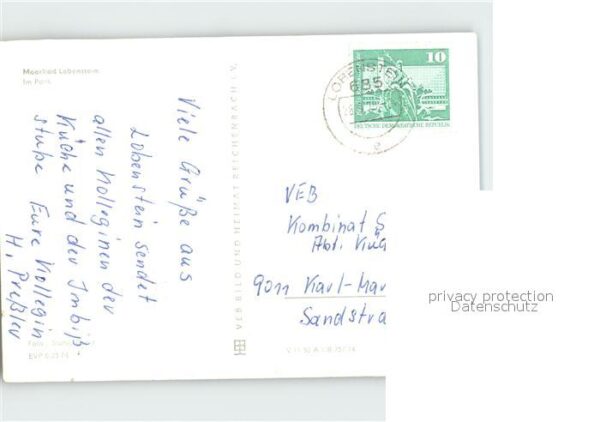 Moorbad Lobenstein
Im Park
Viele Grüße aus
Lobenstein sendet
allen Kolleginen der
Küche und der Imbiß-
stube Eure Kollegin
H. Preßler
VEB BILD UND HEIMAT REICHENBACH I. V.
10
DEUTSCHE DEMOKRATISCHE REPUBLIK
LOBENSTEIN
685
e
VEB
Kombinat S
Abt. Kü
9011 Karl-Mar
Sandstra
privacy protection
Datenschutz